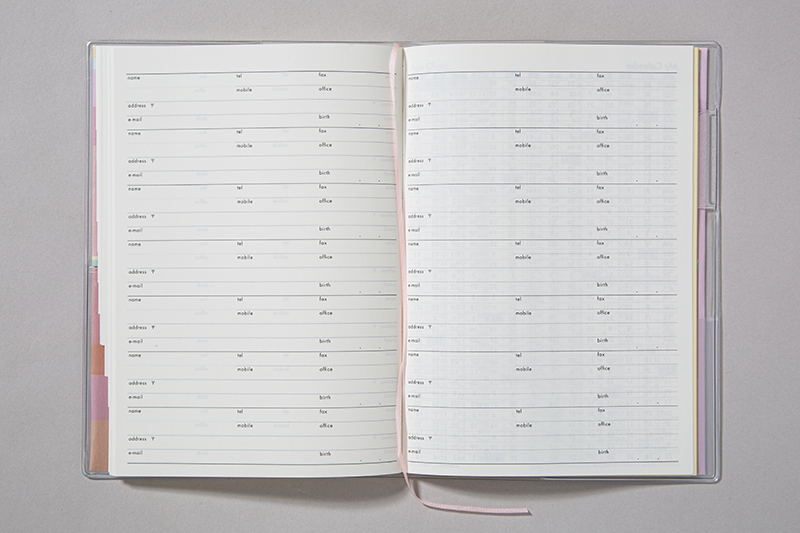 name tel fax
mobile office
address 〒
e-mail birth . .
name tel fax
mobile office
address 〒
e-mail birth . .
name tel fax
mobile office
address 〒
e-mail birth . .
name tel fax
mobile office
address 〒
e-mail birth . .
name tel fax
mobile office
address 〒
e-mail birth . .
name tel fax
mobile office
address 〒
e-mail birth . .
name tel fax
mobile office
address 〒
e-mail birth . .
name tel fax
mobile office
address 〒
e-mail birth . .
name tel fax
mobile office
address 〒
e-mail birth . .
name tel fax
mobile office
address 〒
e-mail birth . .
name tel fax
mobile office
address 〒
e-mail birth . .
name tel fax
mobile office
address 〒
e-mail birth . .
name tel fax
mobile office
address 〒
e-mail birth . .
name tel fax
mobile office
address 〒
e-mail birth . .